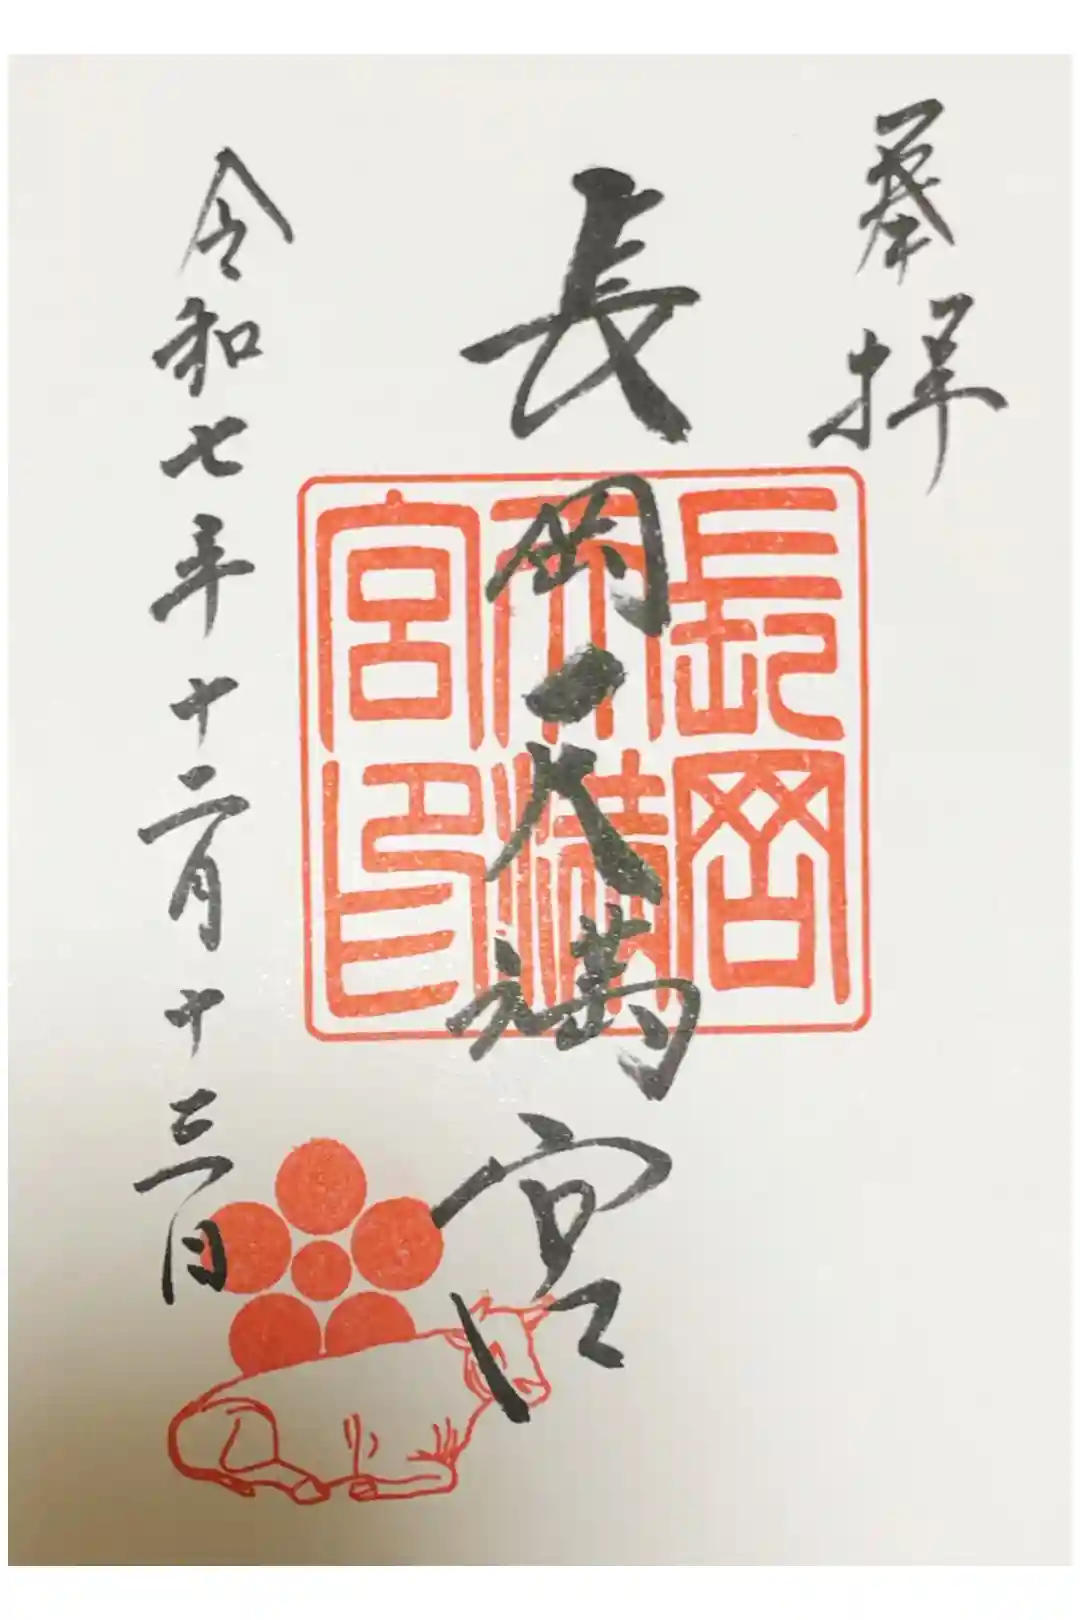 奉拝
長岡天満宮
長岡
天満
宮印
令和七年十二月十三日